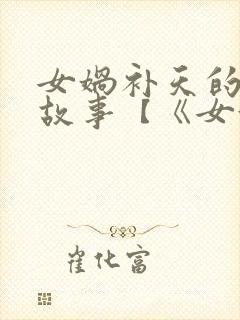 女娲补天的
故事【《女
崔化富